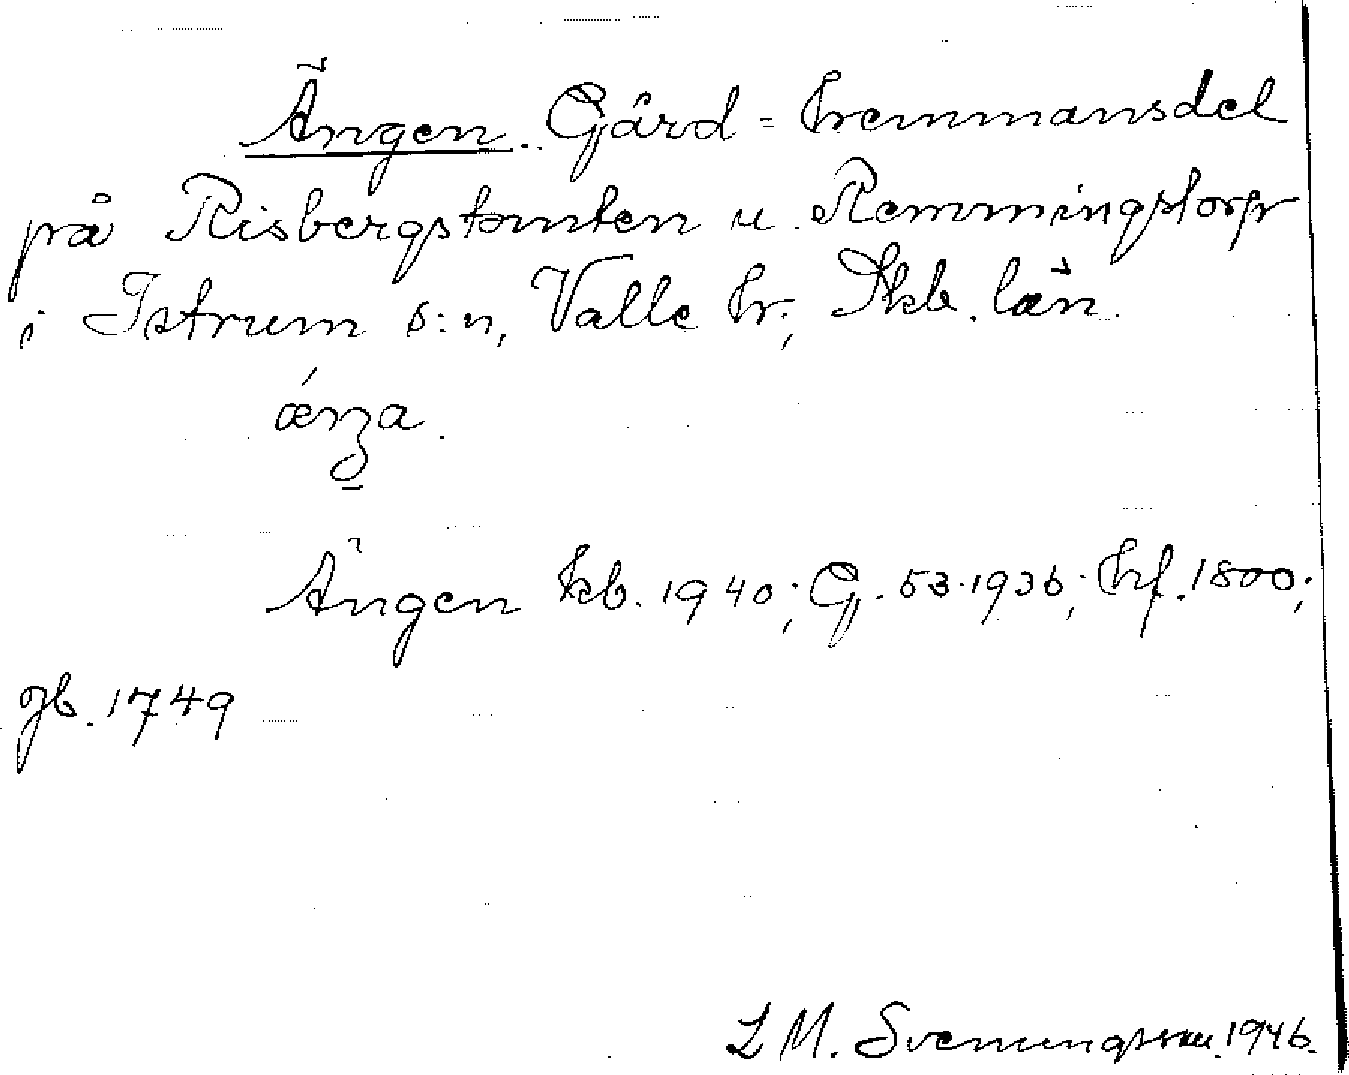 Ängen. Gård = hemmansdel
på Risbergstomten u. Remmingstorp
i Istrum s:n, Valle hr, Skb. län.
Ängen kb. 1940; G. 53.1936; hf. 1800;
jb. 1749
L M. Svenungsson. 1946.